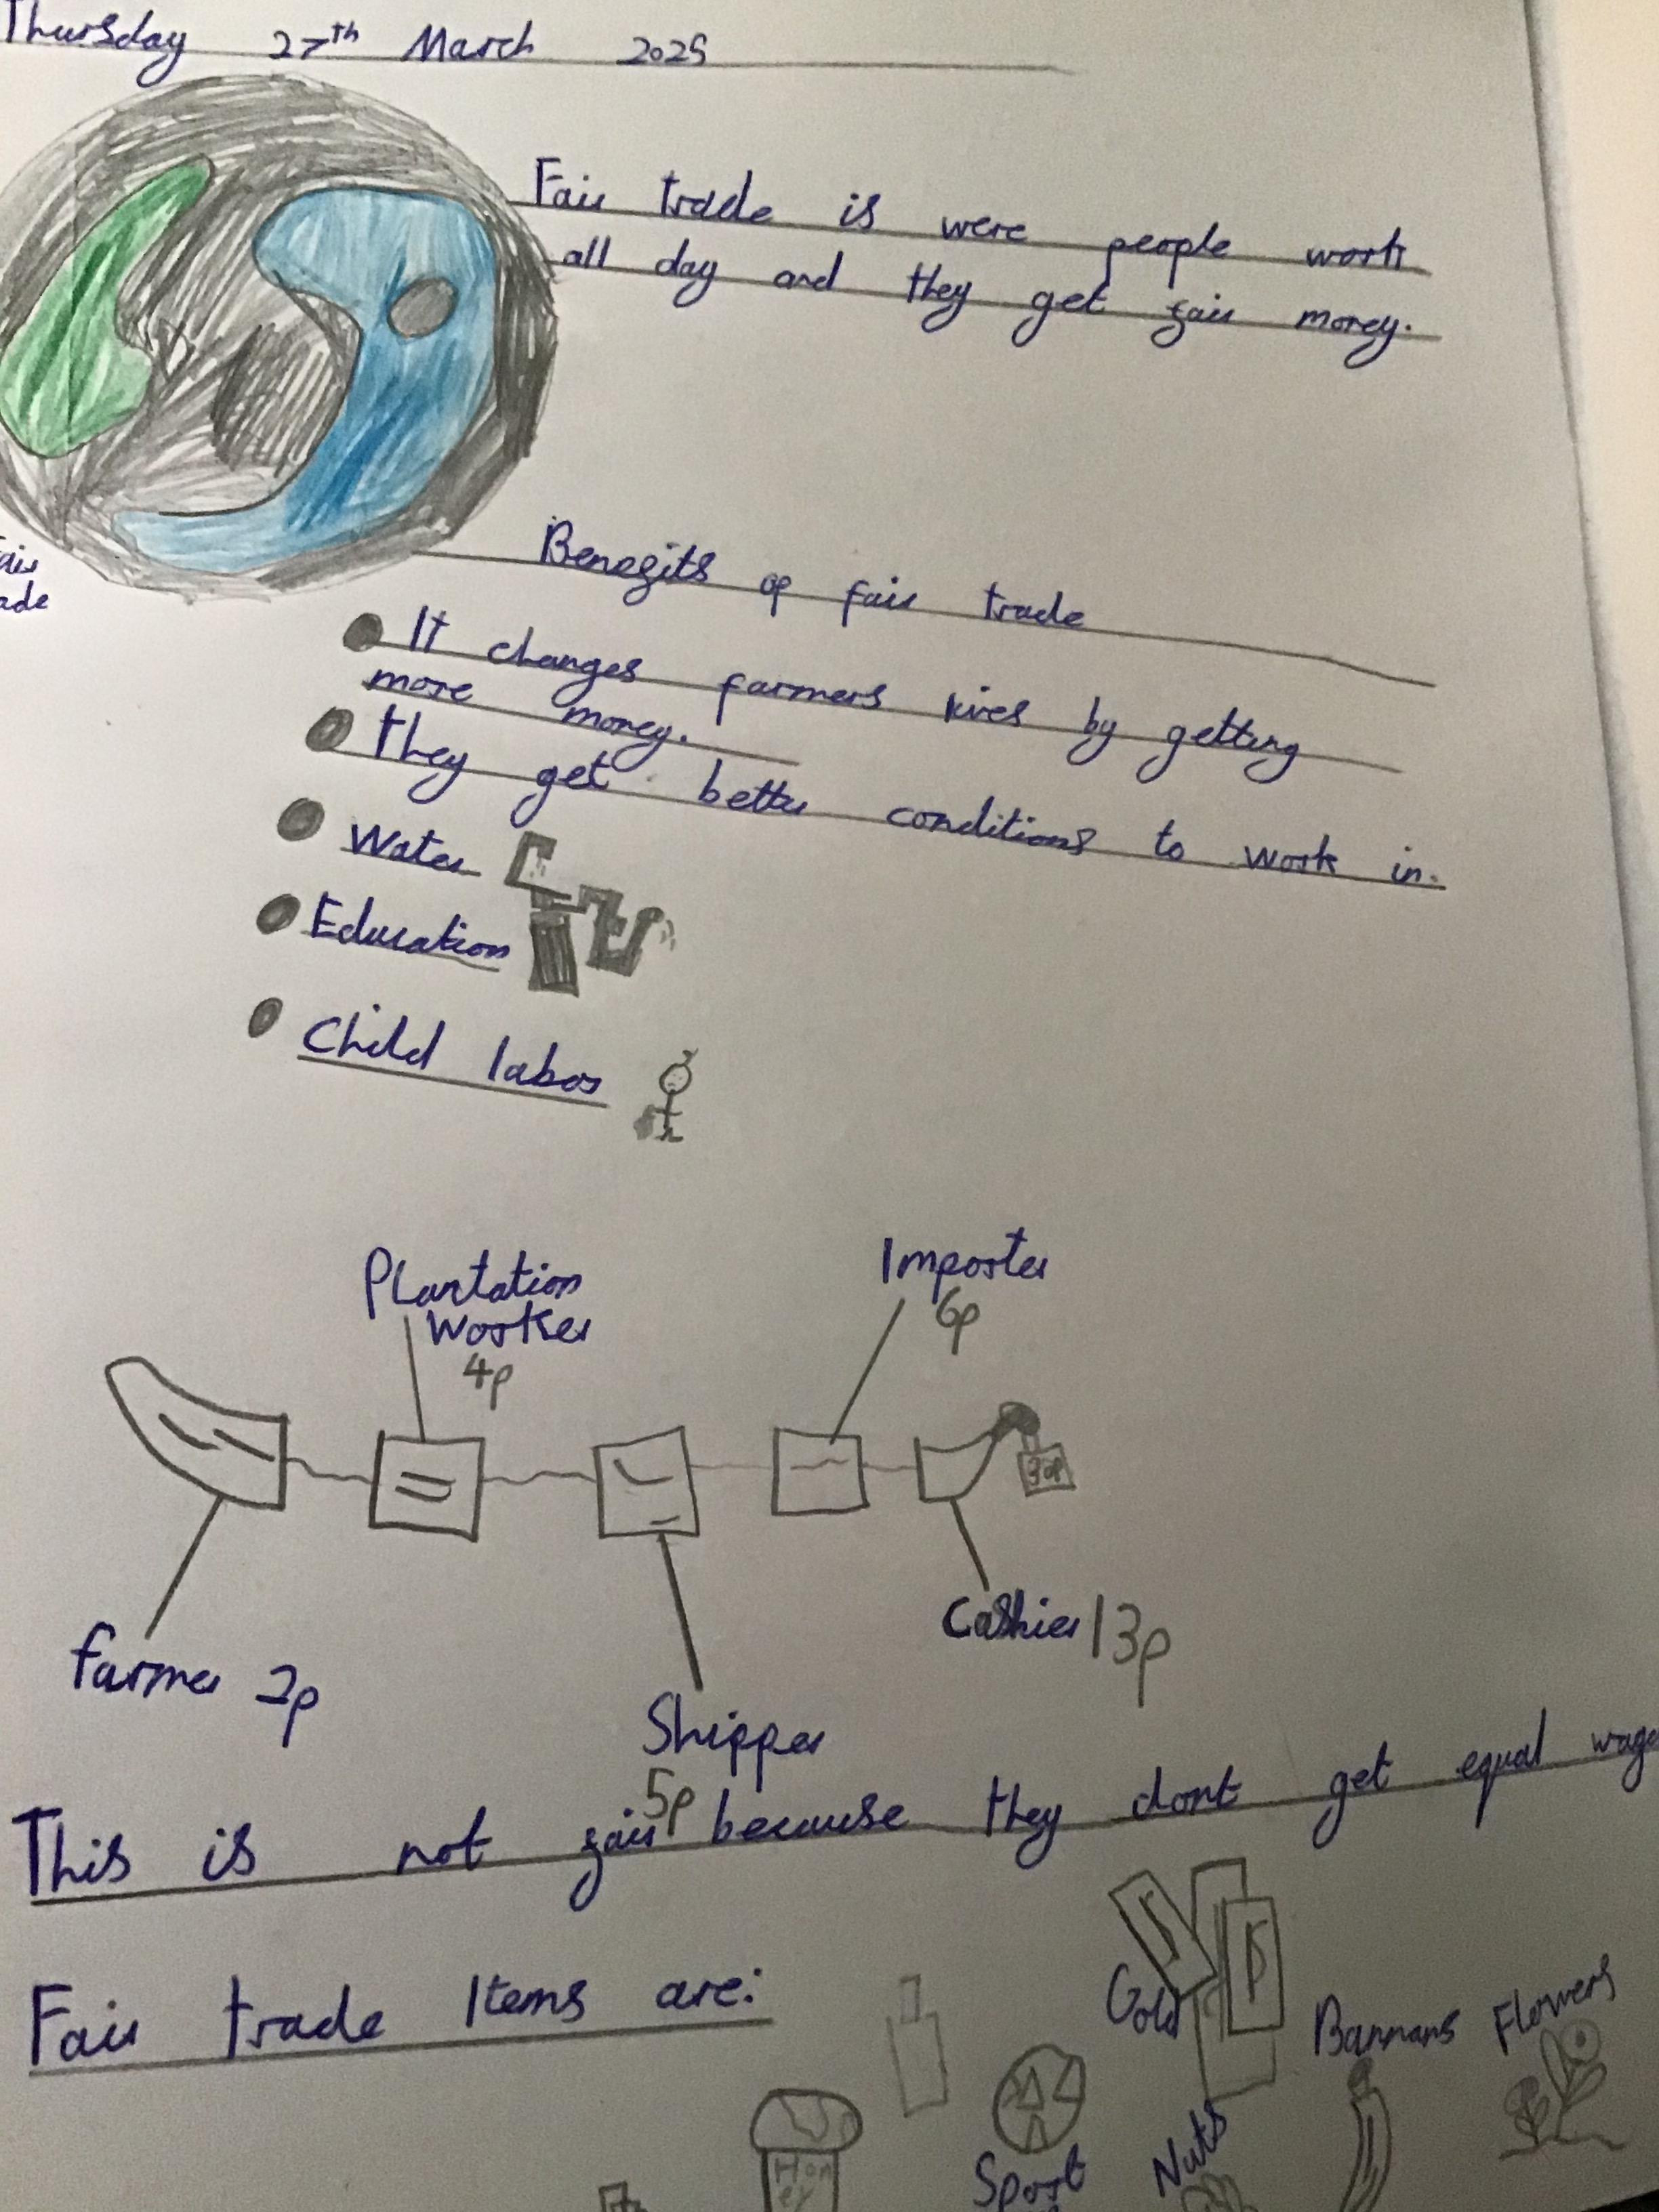 Thursday 27th March 2025
Fair trade is were people work
all day and they get fair money.
Benefits of fair trade
It changes farmers lives by getting
more money.
They get better conditions to work in.
Water
Education
Child labor
Plantation
Worker
4p
Importer
6p
30p
Farmer 2p
Cashier 13p
Shipper
5p
This is not fair because they dont get equal
Fair trade Items are:
Gold
Bannans
Flowers
Sport
Nuts
Hon
ey